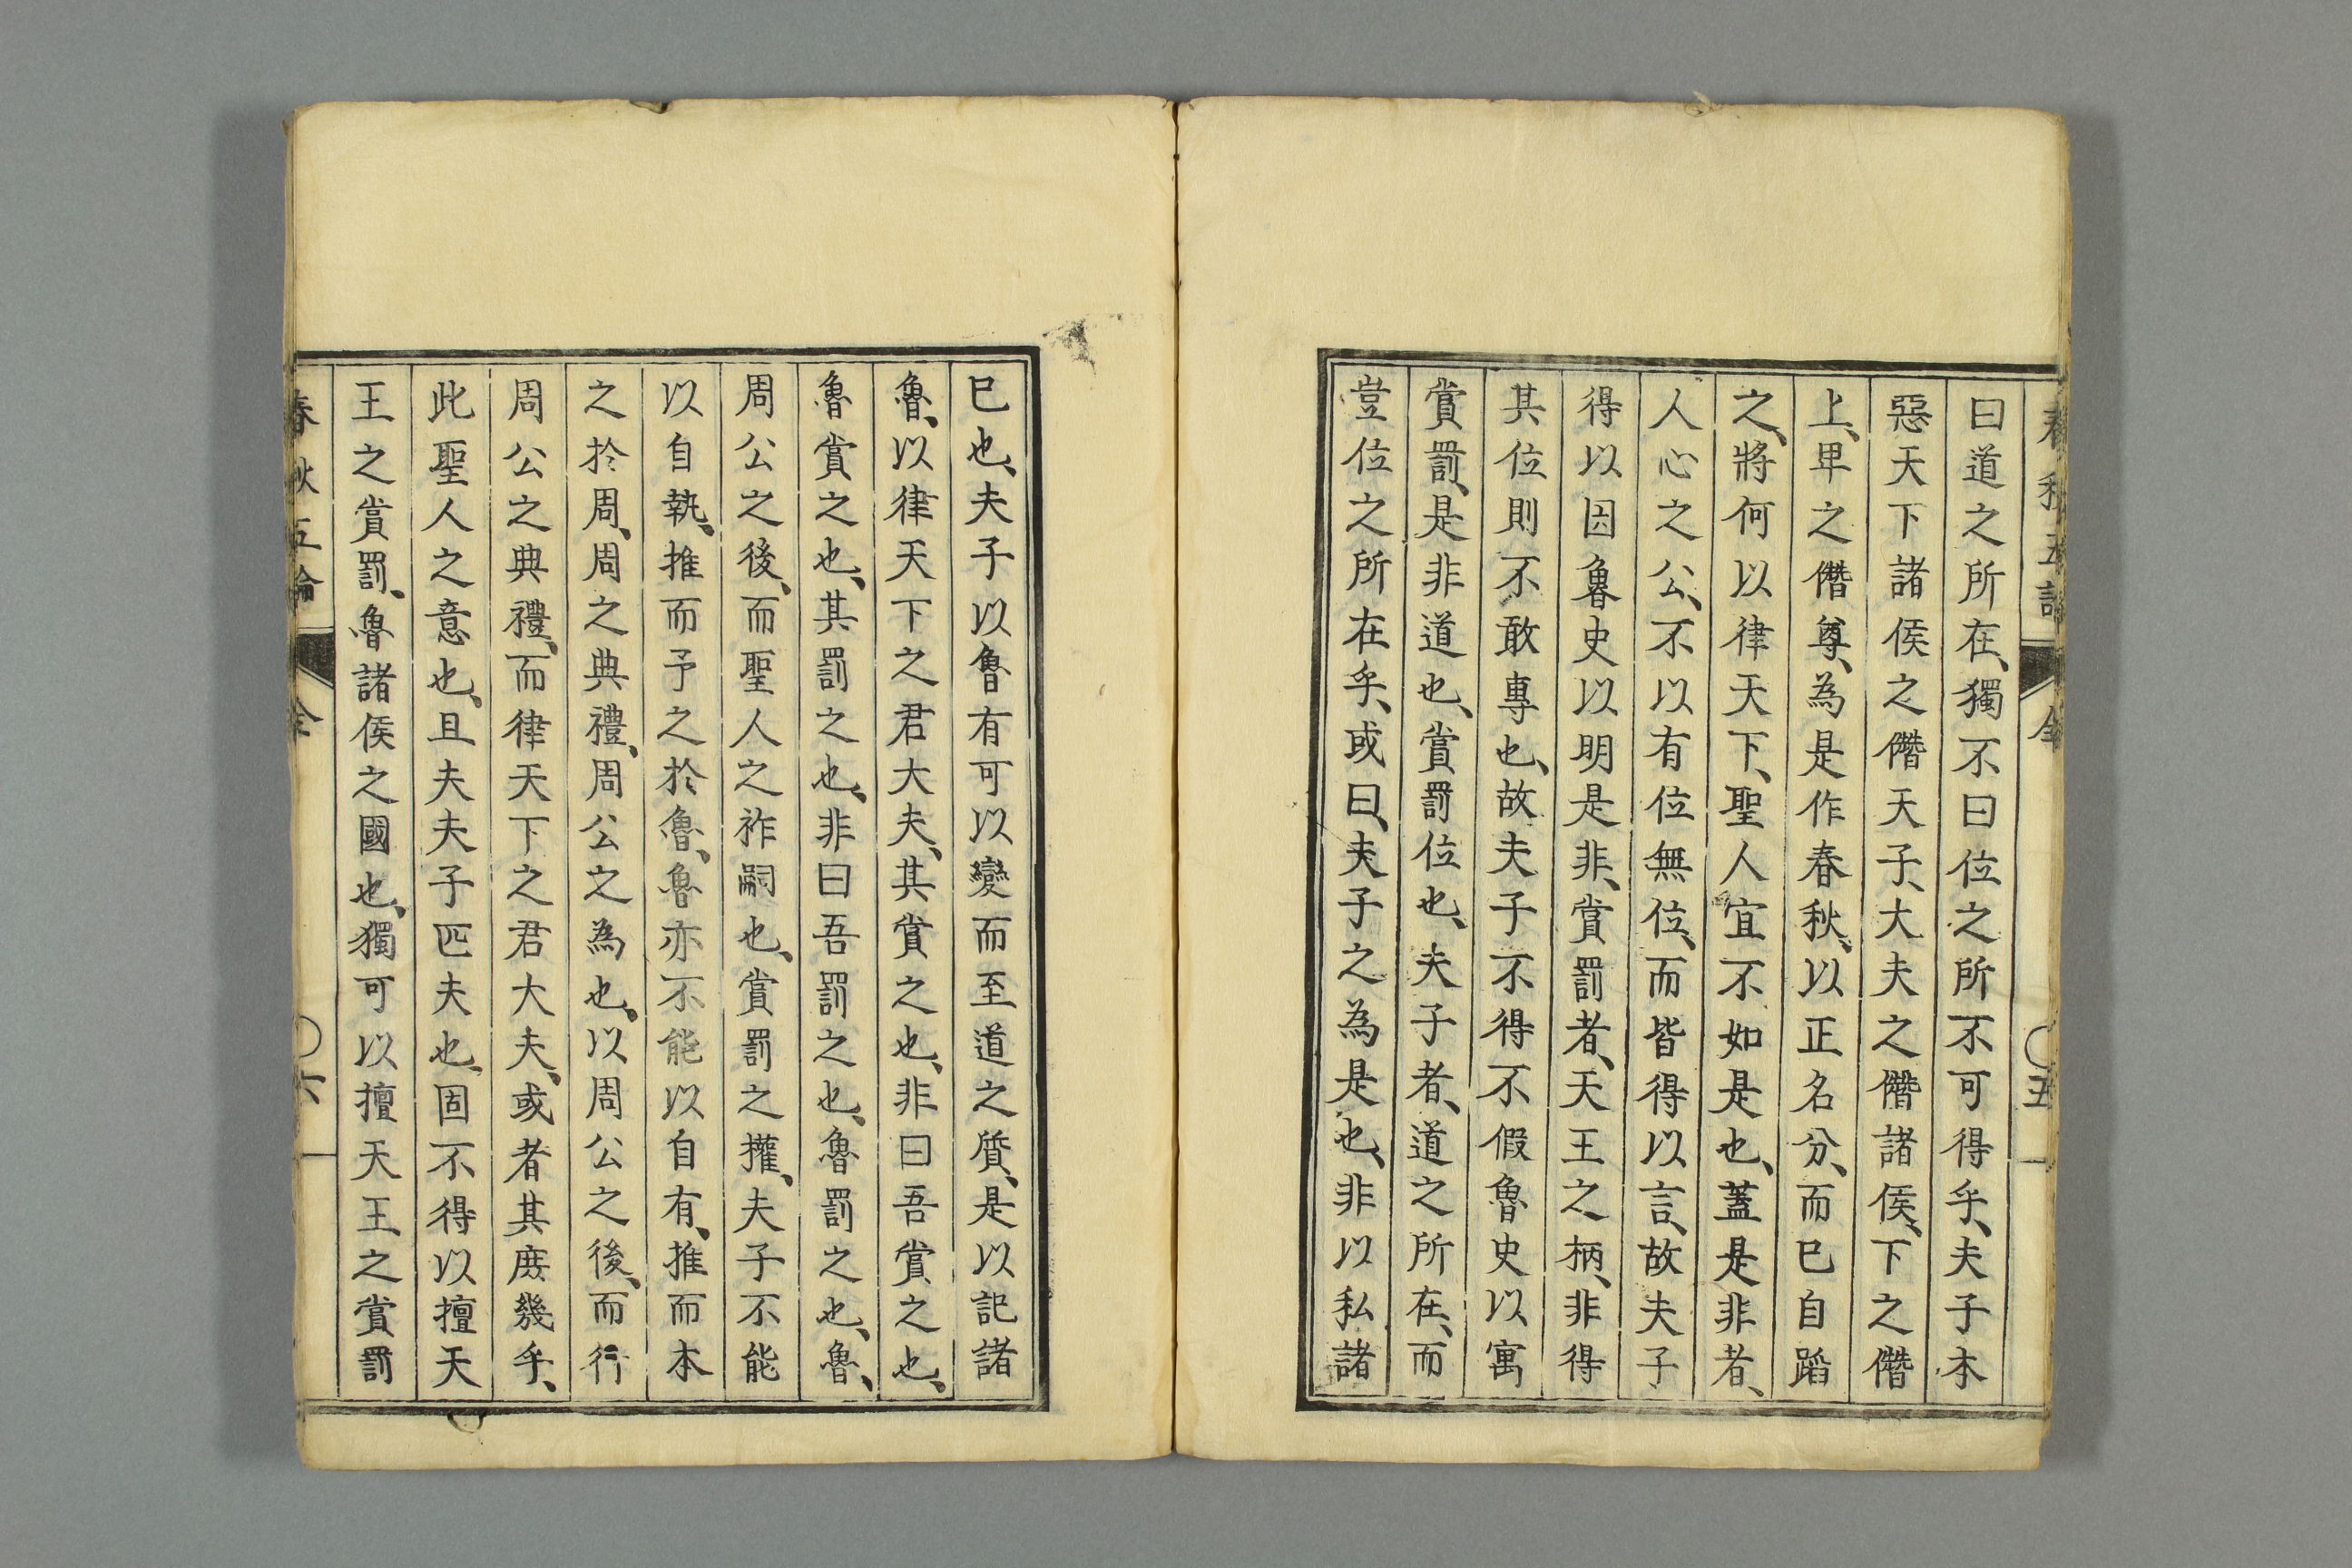 春秋五論 全 〇五
曰道之所在、獨不曰位之所不可得乎、夫子本
惡天下諸侯之僭天子、大夫之僭諸侯、下之僭
上、卑之僭尊、為是作春秋、以正名分、而已自蹈
之、將何以律天下、聖人宜不如是也、蓋是非者、
人心之公、不以有位無位、而皆得以言、故夫子
得以因魯史以明是非、賞罰者、天王之柄、非得
其位則不敢專也、故夫子不得不假魯史以寓
賞罰、是非道也、賞罰位也、夫子者、道之所在、而
豈位之所在乎、或曰、夫子之為是也、非以私諸
已也、夫子以魯有可以變而至道之質、是以記諸
魯、以律天下之君大夫、其賞之也、非曰吾賞之也、
魯賞之也、其罰之也、非曰吾罰之也、魯罰之也、魯、
周公之後、而聖人之祚嗣也、賞罰之權、夫子不能
以自執、推而予之於魯、魯亦不能以自有、推而本
之於周、周之典禮、周公之為也、以周公之後、而行
周公之典禮、而律天下之君大夫、或者其庶幾乎、
此聖人之意也、且夫夫子匹夫也、固不得以擅天
王之賞罰、魯諸侯之國也、獨可以擅天王之賞罰
春秋五論 全 〇六